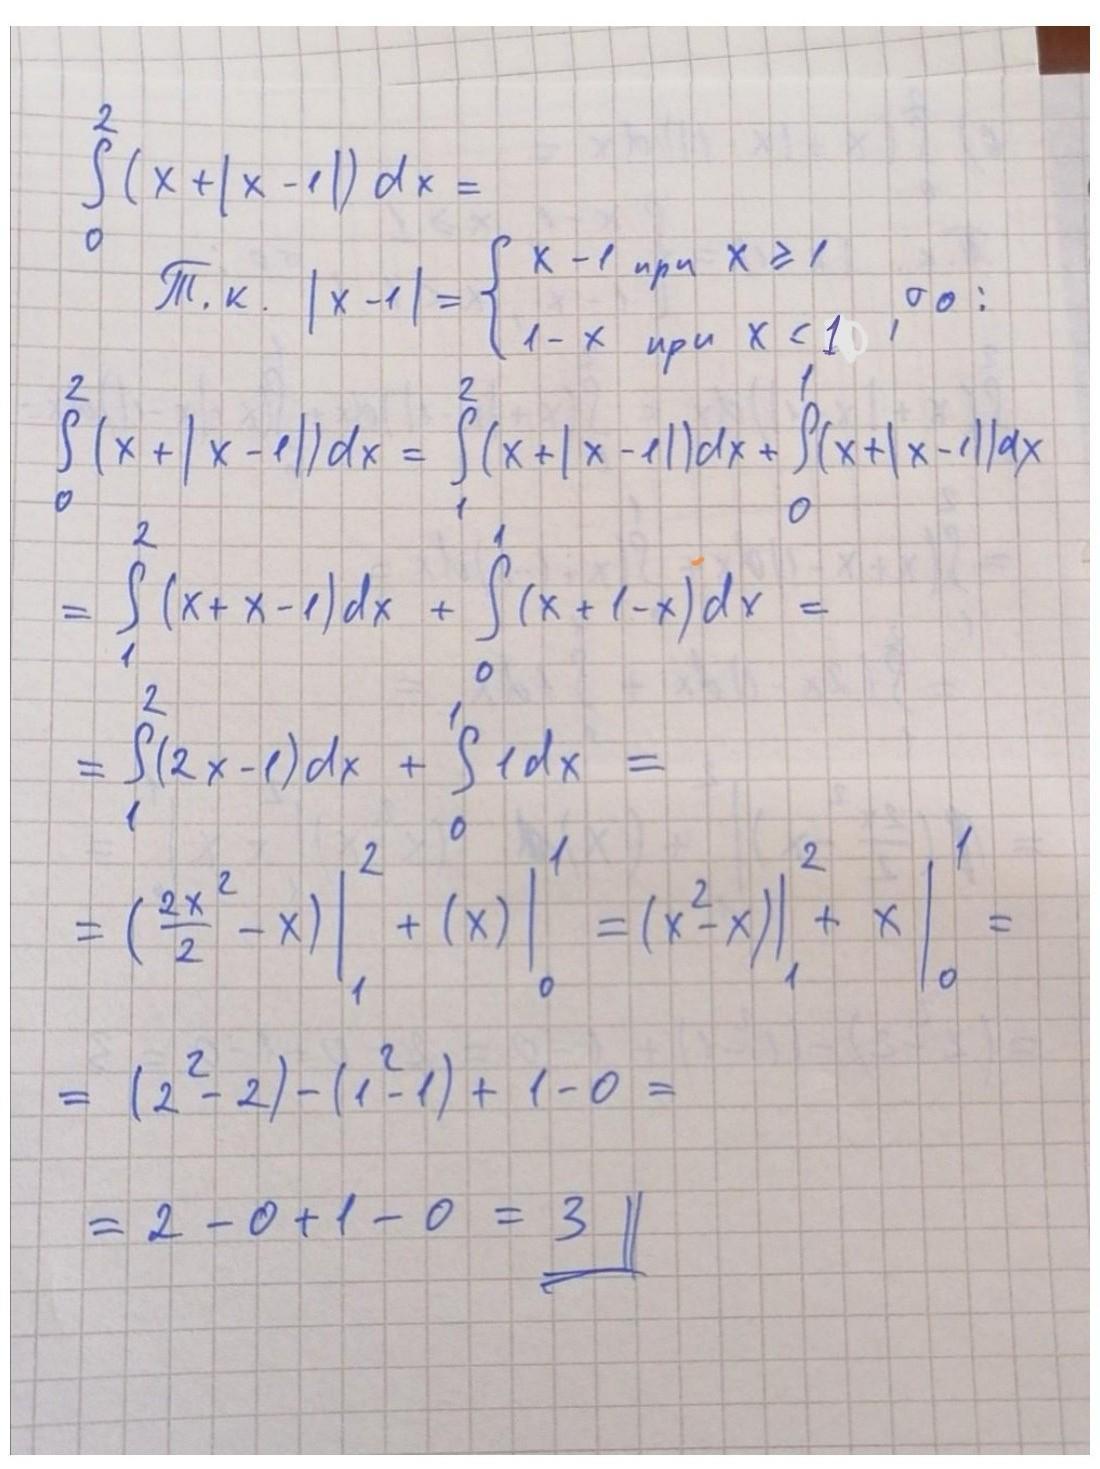 ∫₀² (x+|x-1|) dx =
Т.к. |x-1| = { x-1 при x ≥ 1
1-x при x < 1 , то:
∫₀² (x+|x-1|)dx = ∫₁² (x+|x-1|)dx + ∫₀¹ (x+|x-1|)dx
= ∫₁² (x+x-1)dx + ∫₀¹ (x+1-x)dx =
= ∫₁² (2x-1)dx + ∫₀¹ 1dx =
= (2x²/2 - x)|₁² + (x)|₀¹ = (x²-x)|₁² + x|₀¹ =
= (2²-2)-(1²-1)+1-0 =
= 2-0+1-0 = 3